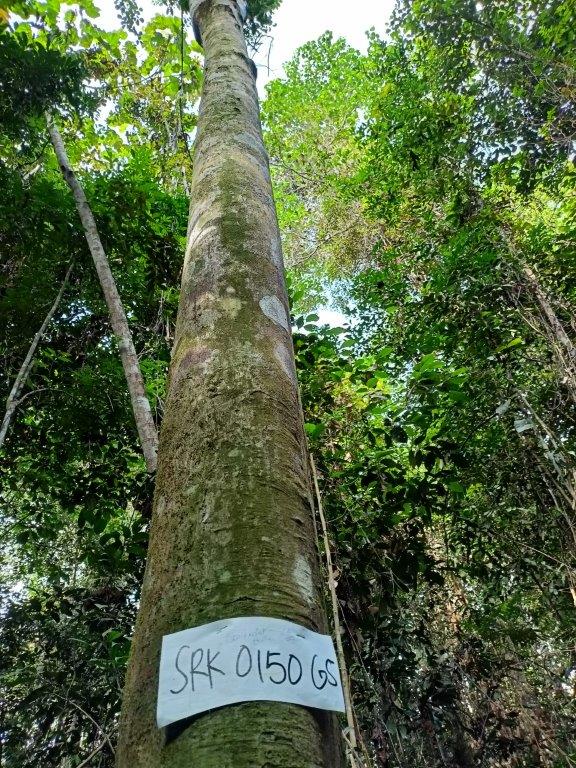 SRK 0150 GS